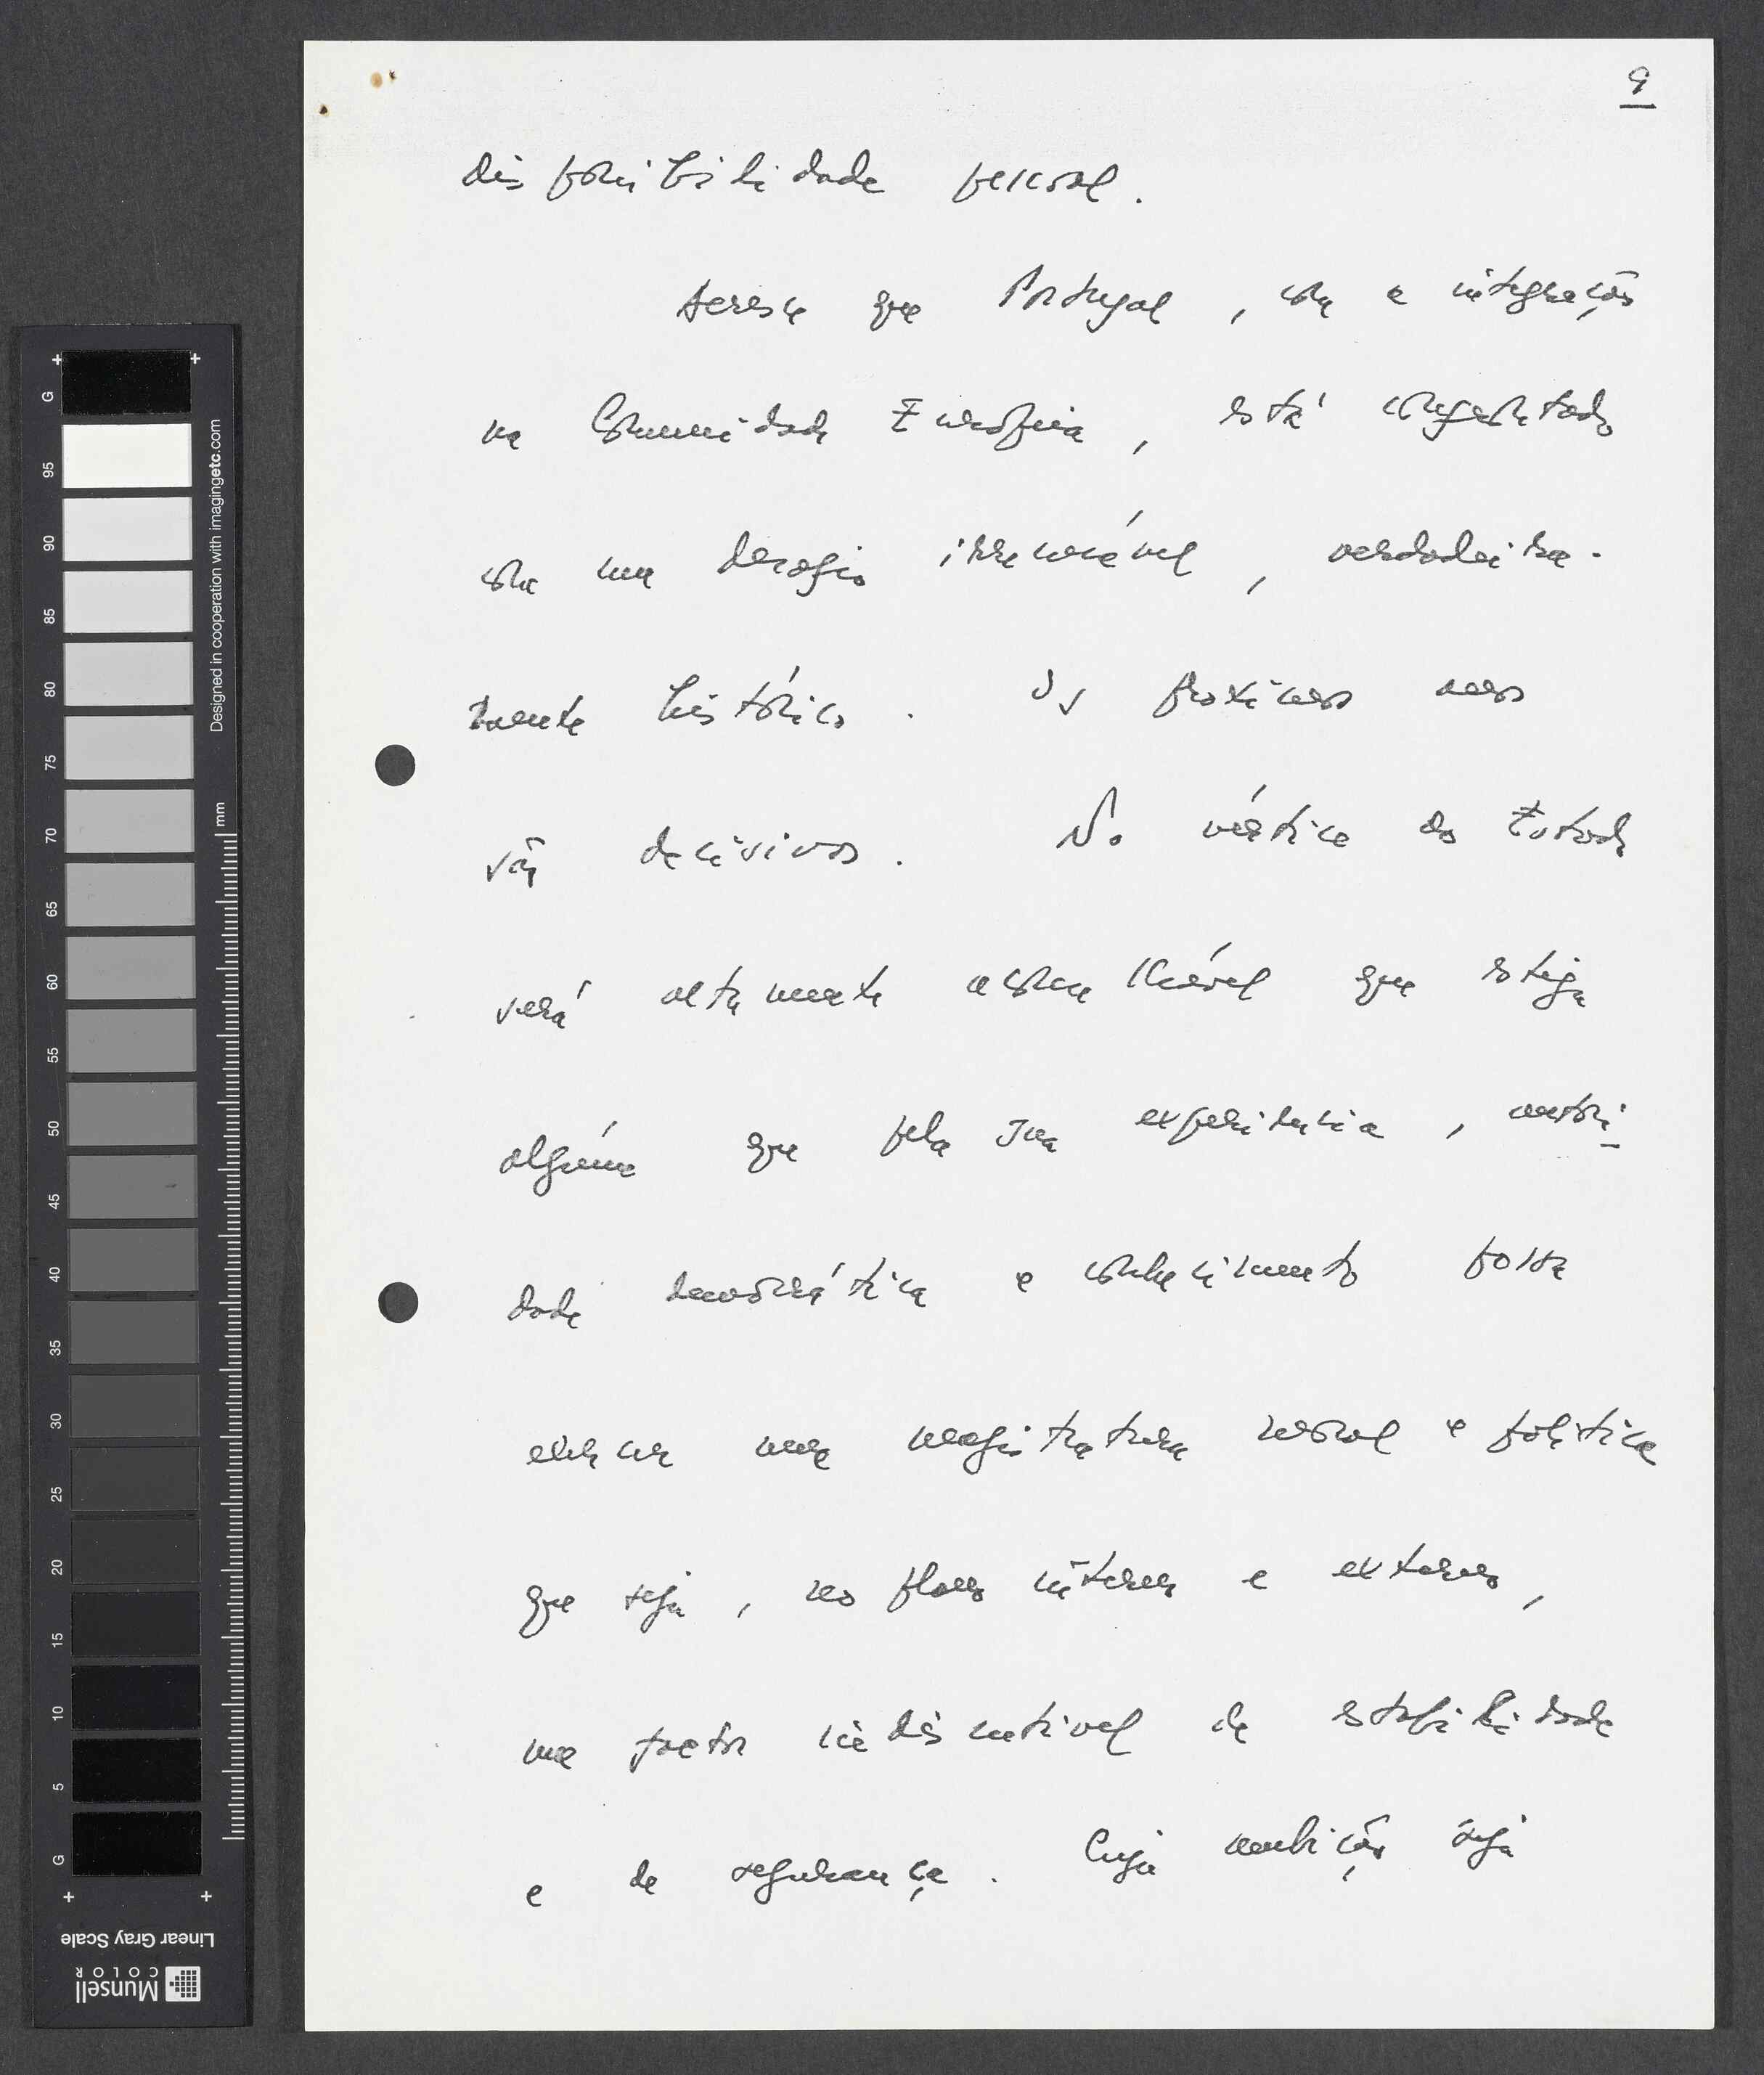 9
disponibilidade pessoal.
Acresce que Portugal, com a integração
na Comunidade Europeia, está confrontado
com um desafio irrecusável, verdadeira-
mente histórico. Os próximos anos
são decisivos. No vértice do Estado
será altamente aconselhável que esteja
alguém que pela sua experiência, autori-
dade democrática e conhecimento possa
exercer uma magistratura moral e política
que seja, no plano interno e externo,
um factor indiscutível de estabilidade
e de segurança. Cuja ambição seja
G
95
90
85
80
75
70
65
60
55
50
45
40
35
30
25
20
15
10
5
G
mm
Designed in cooperation with imagingetc.com
Linear Gray Scale
Munsell
COLOR